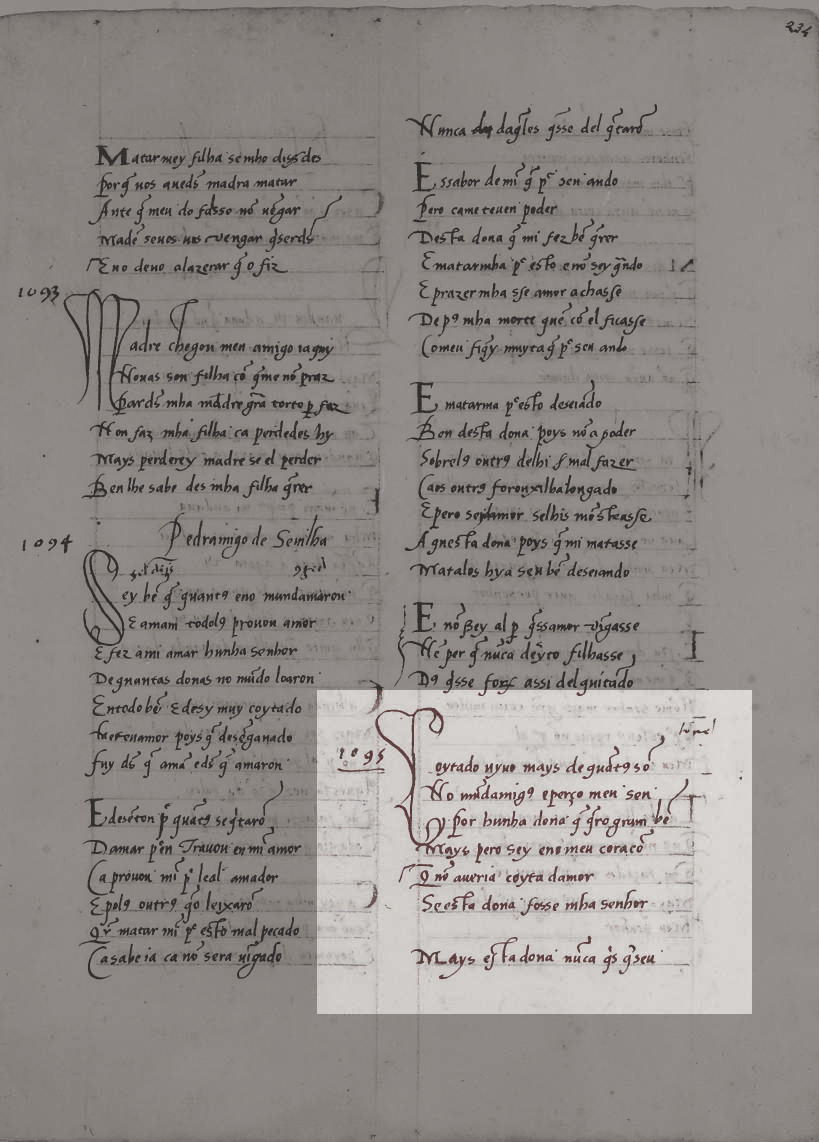 234
Matarmey filha semho dissedes
Porq̃ uos auedʼs madra matar
Ante q̃ meu do fasso nõ uẽgar
Madẽ seuos uos vengar q̃serdʼs
Eno deuo alazerar q̃ o fiz
1093
Madre chegou meu amigo iaqui
Nouas son filha cõ q̃me nõ praz
Pardʼs mha mãdre grã torto p̱ faz
Non faz mha filha ca perdedes hy
Mays perderey madre se el perder
Ben lhe sabe des mha filha q̃rer
1094
Pedramigo de Seuilha
Sey bẽ q̃ quantꝯ eno mundamaron
E amam todolꝯ prouou amor
E fez ami amar hunha senhor
De quantas donas no mũdo loaron
En todo bẽ E desy muy coytado
me teuamor poys q̃ deseganado
fuy dʼs q̃ amã edʼs q̃ amaron
E deseton pʼ quantꝯ seq̃tarõ
Damar pʼen Trauou en mi amor
Ca prouou mi pʼ leal amador
E polꝯ outrꝯ q̃o leixarõ
Qʼr matar mĩ pʼ esto mal pecado
Ca sabe ia ca nõ sera uĩgado
Nunca daq̃les q̃sse del q̃tarõ
E ssabor de mĩ q̃ pʼ seu ando
Pero cameteuen poder
Desta dona q̃ mi fez bẽ q̃rer
E matarmha pʼ esto enõ sey q̃ndo
E prazer mha sse amor achasse
De pꝯ mha morte que cõ el ficasse
Comeu fiq̃y muytaq̃ pʼ seu ando
E matarma pʼ esto deseiãdo
Ben desta dona poys nõ a poder
Sobrelꝯ outrꝯ delhi mal fazer
Caos outrꝯ foronxilhalongado
E pero seamor selhis mõstrasse
Aquesta dona poys q̃ mi matasse
Matalos hya seu bẽ deseiando
E nõ sey al p̱ q̃ssamor uĩgasse
Nẽ per q̃ nũca deyto filhasse
Dꝯ q̃sse forõ assi del quitado
1095
tornel
Coytado uyuo mays de quãtꝯ sõ
No mũdamigꝯ e perço meu sen
Por hunha dona q̃ q̃ro gram bẽ
Mays pero sey eno meu coraçõ
Q̃ nõ aueria coyta damor
Se esta dona fosse mha senhor
Mays esta dona nũca q̃s q̃seu